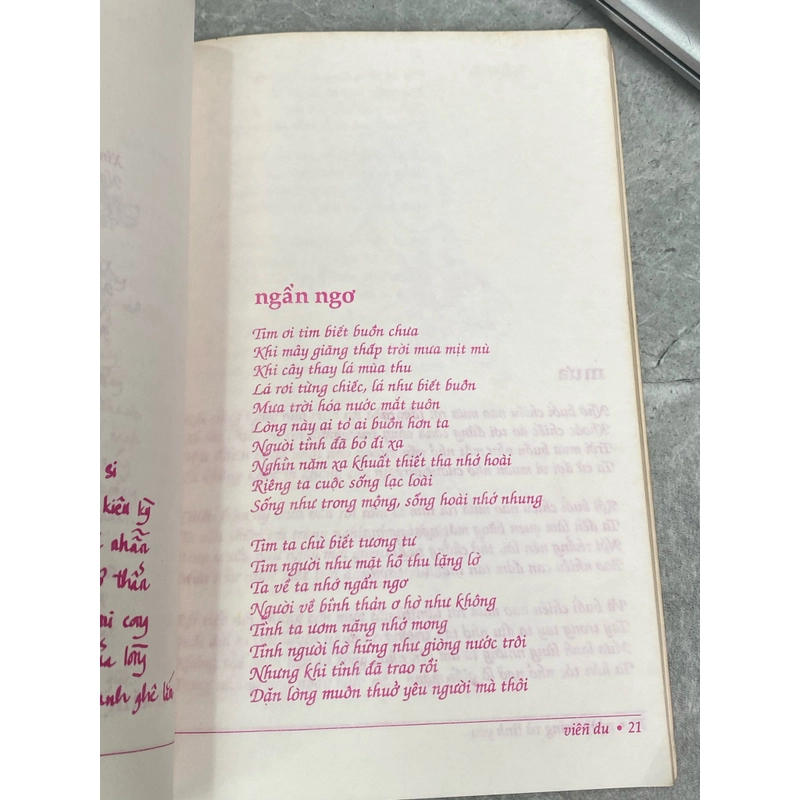 si
kiêu kỳ
nhẫn
thấn
lòng
ngẩn ngơ
Tim ơi tim biết buồn chưa
Khi mây giăng thấp trời mưa mịt mù
Khi cây thay lá mùa thu
Lá rơi từng chiếc, lá như biết buồn
Mưa trời hóa nước mắt tuôn
Lòng này ai tỏ ai buồn hơn ta
Người tình đã bỏ đi xa
Nghìn năm xa khuất thiết tha nhớ hoài
Riêng ta cuộc sống lạc loài
Sống như trong mộng, sống hoài nhớ nhung
Tim ta chừ biết tương tư
Tim người như mặt hồ thu lặng lờ
Ta về ta nhớ ngẩn ngơ
Người về bình thản ơ hờ như không
Tình ta ươm nặng nhớ mong
Tình người hờ hững như giòng nước trôi
Nhưng khi tình đã trao rồi
Dặn lòng muôn thuở yêu người mà thôi
viễn du • 21